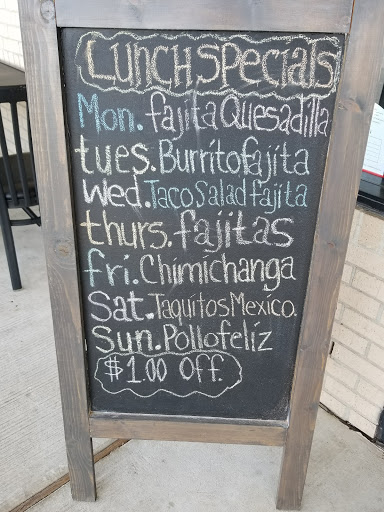 Lunch Specials
Mon. fajita Quesadilla
tues. Burrito fajita
Wed. Taco Salad Fajita
thurs. fajitas
fri. Chimichanga
Sat. Taquitos Mexico.
Sun. Pollo feliz
$1.00 Off.